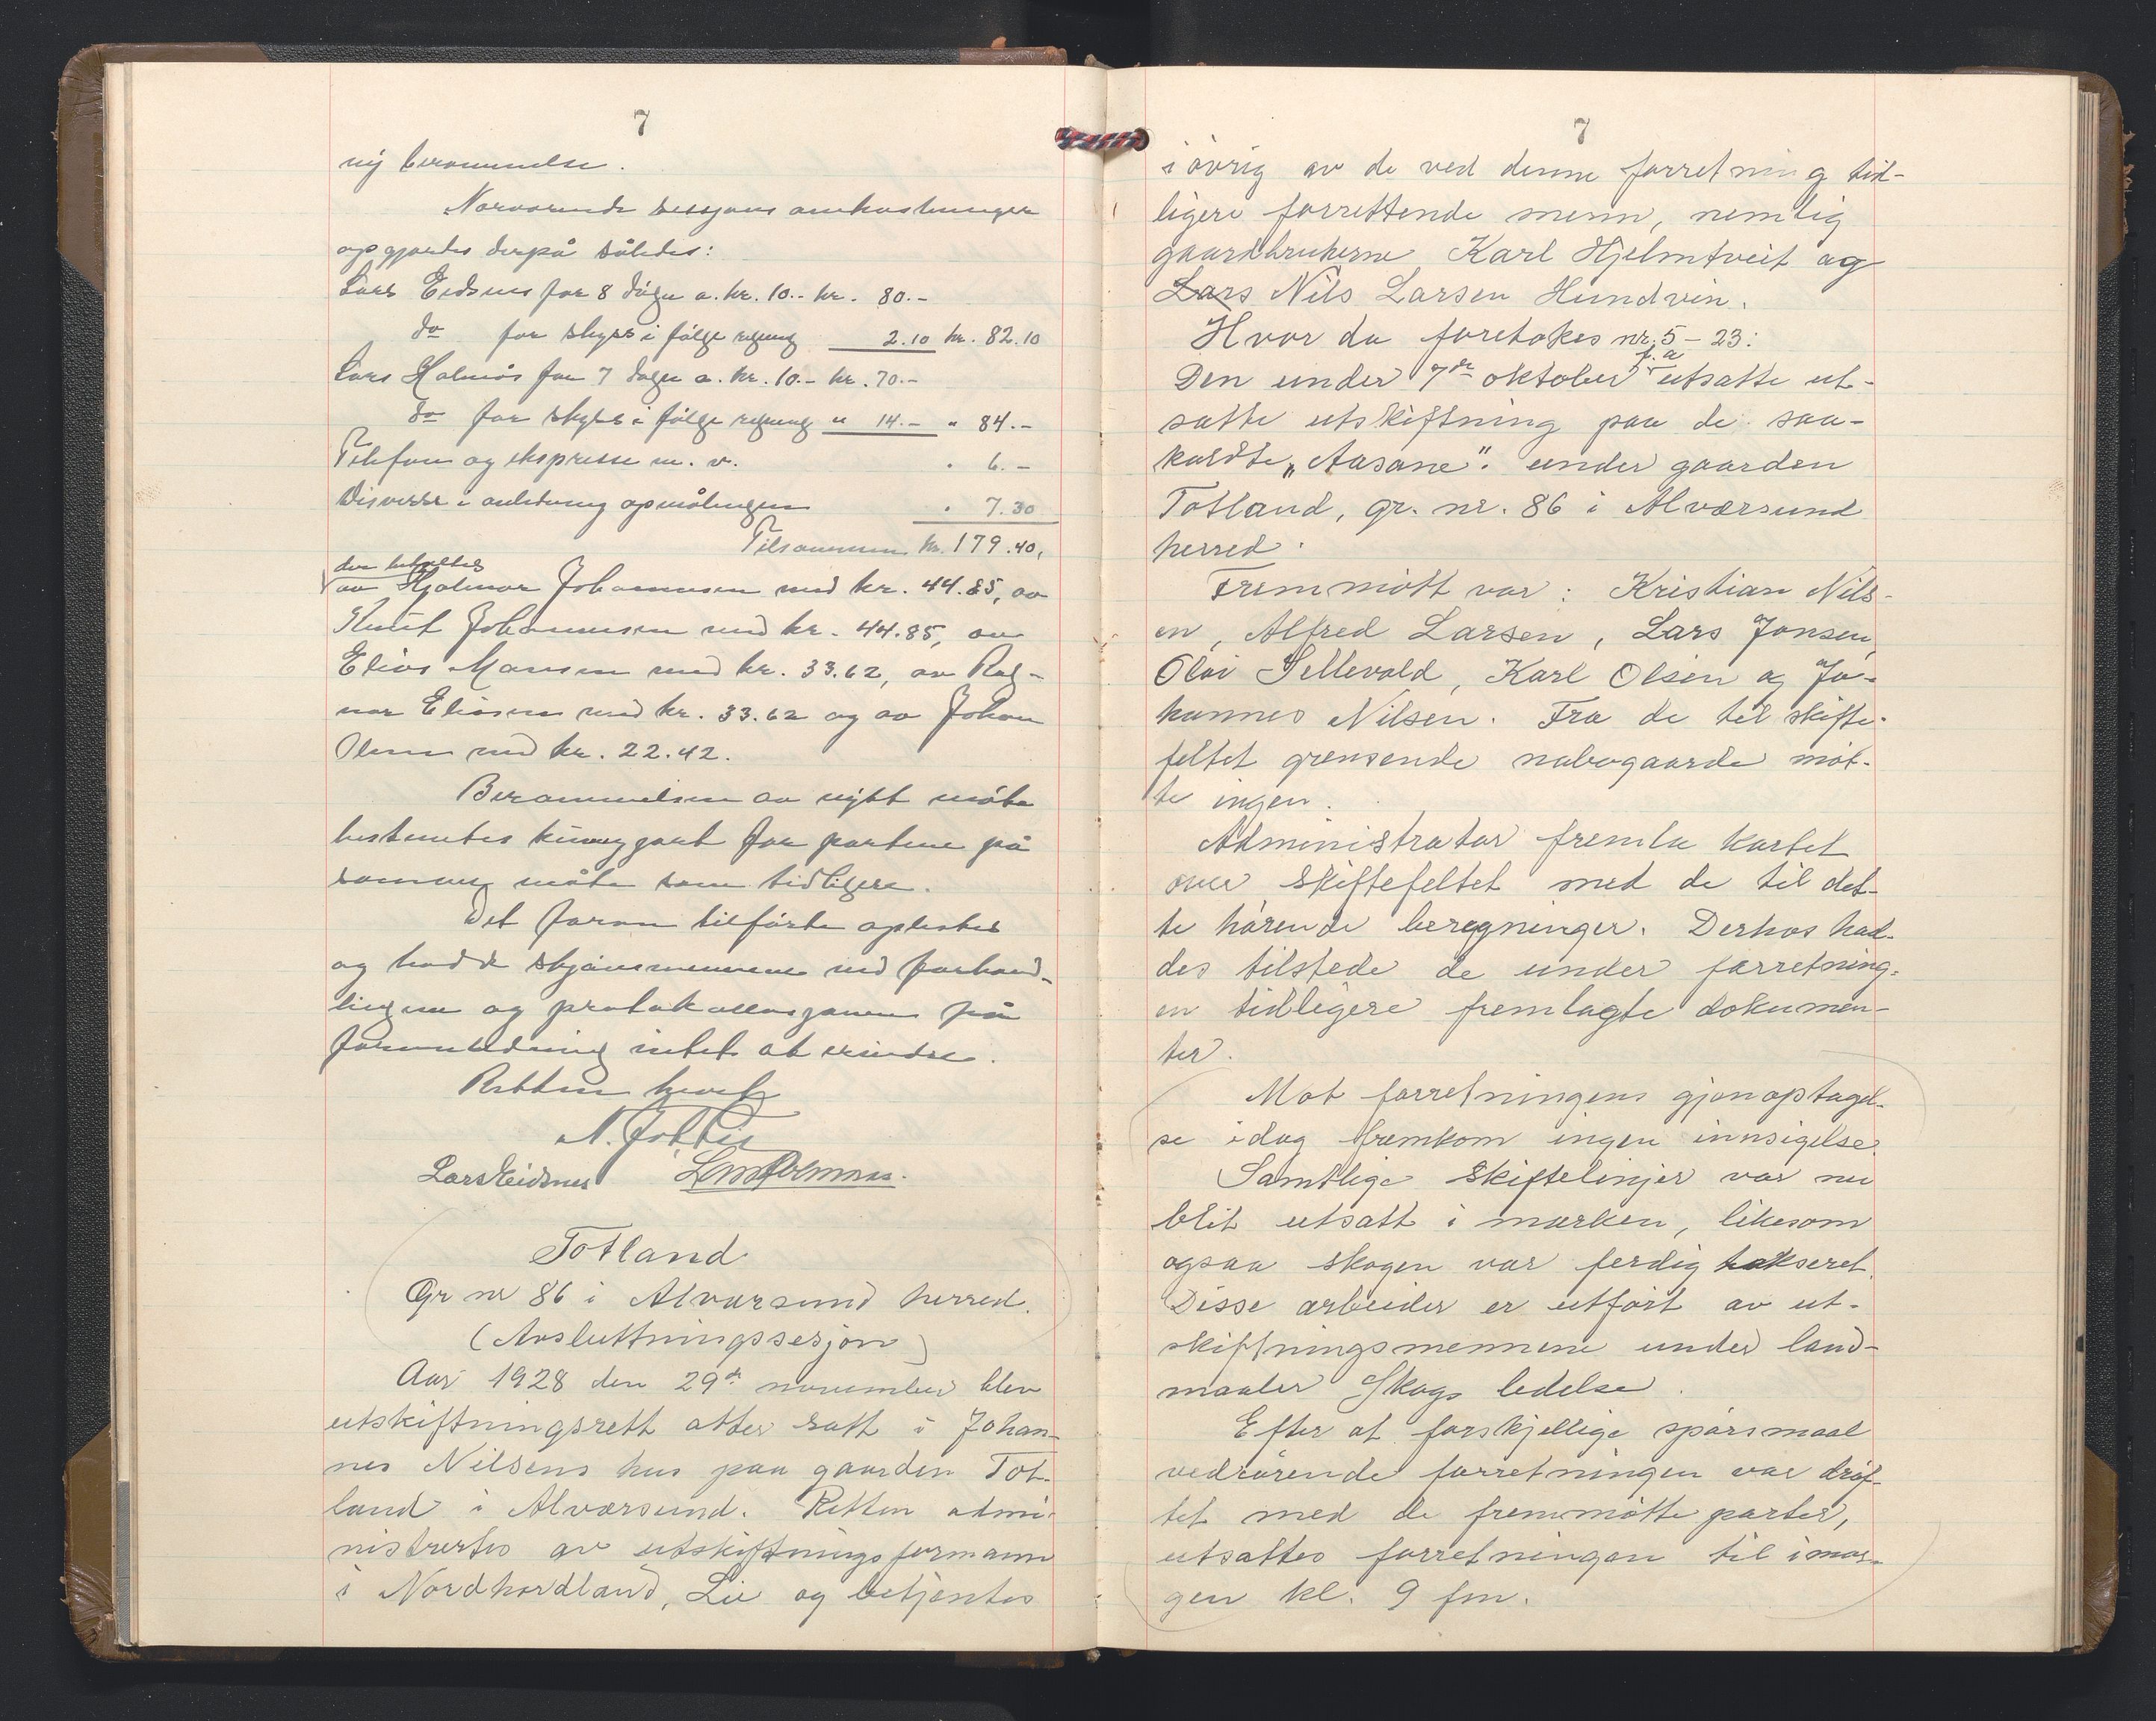 7
ny berammelse.
Nærværende sesjons omkostninger
opgjordes derpå således:
Lars Eidsnes for 8 dage a. kr. 10.- kr. 80.-
do for skyss i følge regning 2.10 kr. 82.10
Lars Holmås for 7 dage a. kr. 10.- kr. 70.-
do for skyss i følge regning " 14.- " 84.-
Telefon og ekspresse m. v. " 6.-
Diverse i anledning opmålingen " 7.30
Tilsammen kr. 179.40,
der betaltes
av Hjalmar Johannesen med kr. 44.85, av
Knut Johannesen med kr. 44.85, av
Elias Monsen med kr. 33.62, av Rag-
nar Eliasen med kr. 33.62 og av Johan
Olsen med kr. 22.42.
Berammelsen av nytt møte
bestemtes kunngjort for partene på
samme måte som tidligere.
Det foran tilførte oplestes
og hadde skjønsmennene ved forhand-
lingene og protokollasjonen på
foranledning intet at erindre.
Retten hevet
Lars Eidsnes
Totland
Gr nr 86 i Alversund herred.
(Avsluttningssesjon)
Aar 1928 den 29de november blev
utskiftningsrett atter satt i Johan-
nes Nilsens hus paa gaarden Tot-
land i Alversund. Retten admi-
nistrertes av utskiftningsformann
i Nordhordland, Lie og betjentes
7
i øvrig av de ved denne forretning tid-
ligere forrettende menn, nemlig
gaardbrukerne Karl Hjelmtveit og
Lars Nils Larsen Hundvin.
Hvor da foretokes nr. 5 - 23:
f. a
Den under 7de oktober utsatte ut-
satte utskiftning paa de saa-
kaldte „Aasane". under gaarden
Totland, gr. nr. 86 i Alversund
herred.
Fremmøtt var: Kristian Nils-
en, Alfred Larsen, Lars Jonsen,
Olai Sellevold, Karl Olsen og Jo-
hannes Nilsen. Fra de til skifte-
feltet grensende nabogaarde møt-
te ingen.
Administrator fremla kartet
over skiftefeltet med de til det-
te hørende beregninger. Derhos had-
des tilstede de under forretning-
en tidligere fremlagte dokumen-
ter.
Mot forretningens gjenoptagel-
se idag fremkom ingen innsigelse.
Samtlige skiftelinjer var nu
blit utsatt i marken, likesom
ogsaa skogen var ferdig takseret.
Disse arbeider er utført av ut-
skiftningsmennene under land-
maaler Skogs ledelse.
Efter at forskjellige spørsmaal
vedrørende forretningen var drøf-
tet med de fremmøtte parter,
utsattes forretningen til imor-
gen kl. 9 fm.